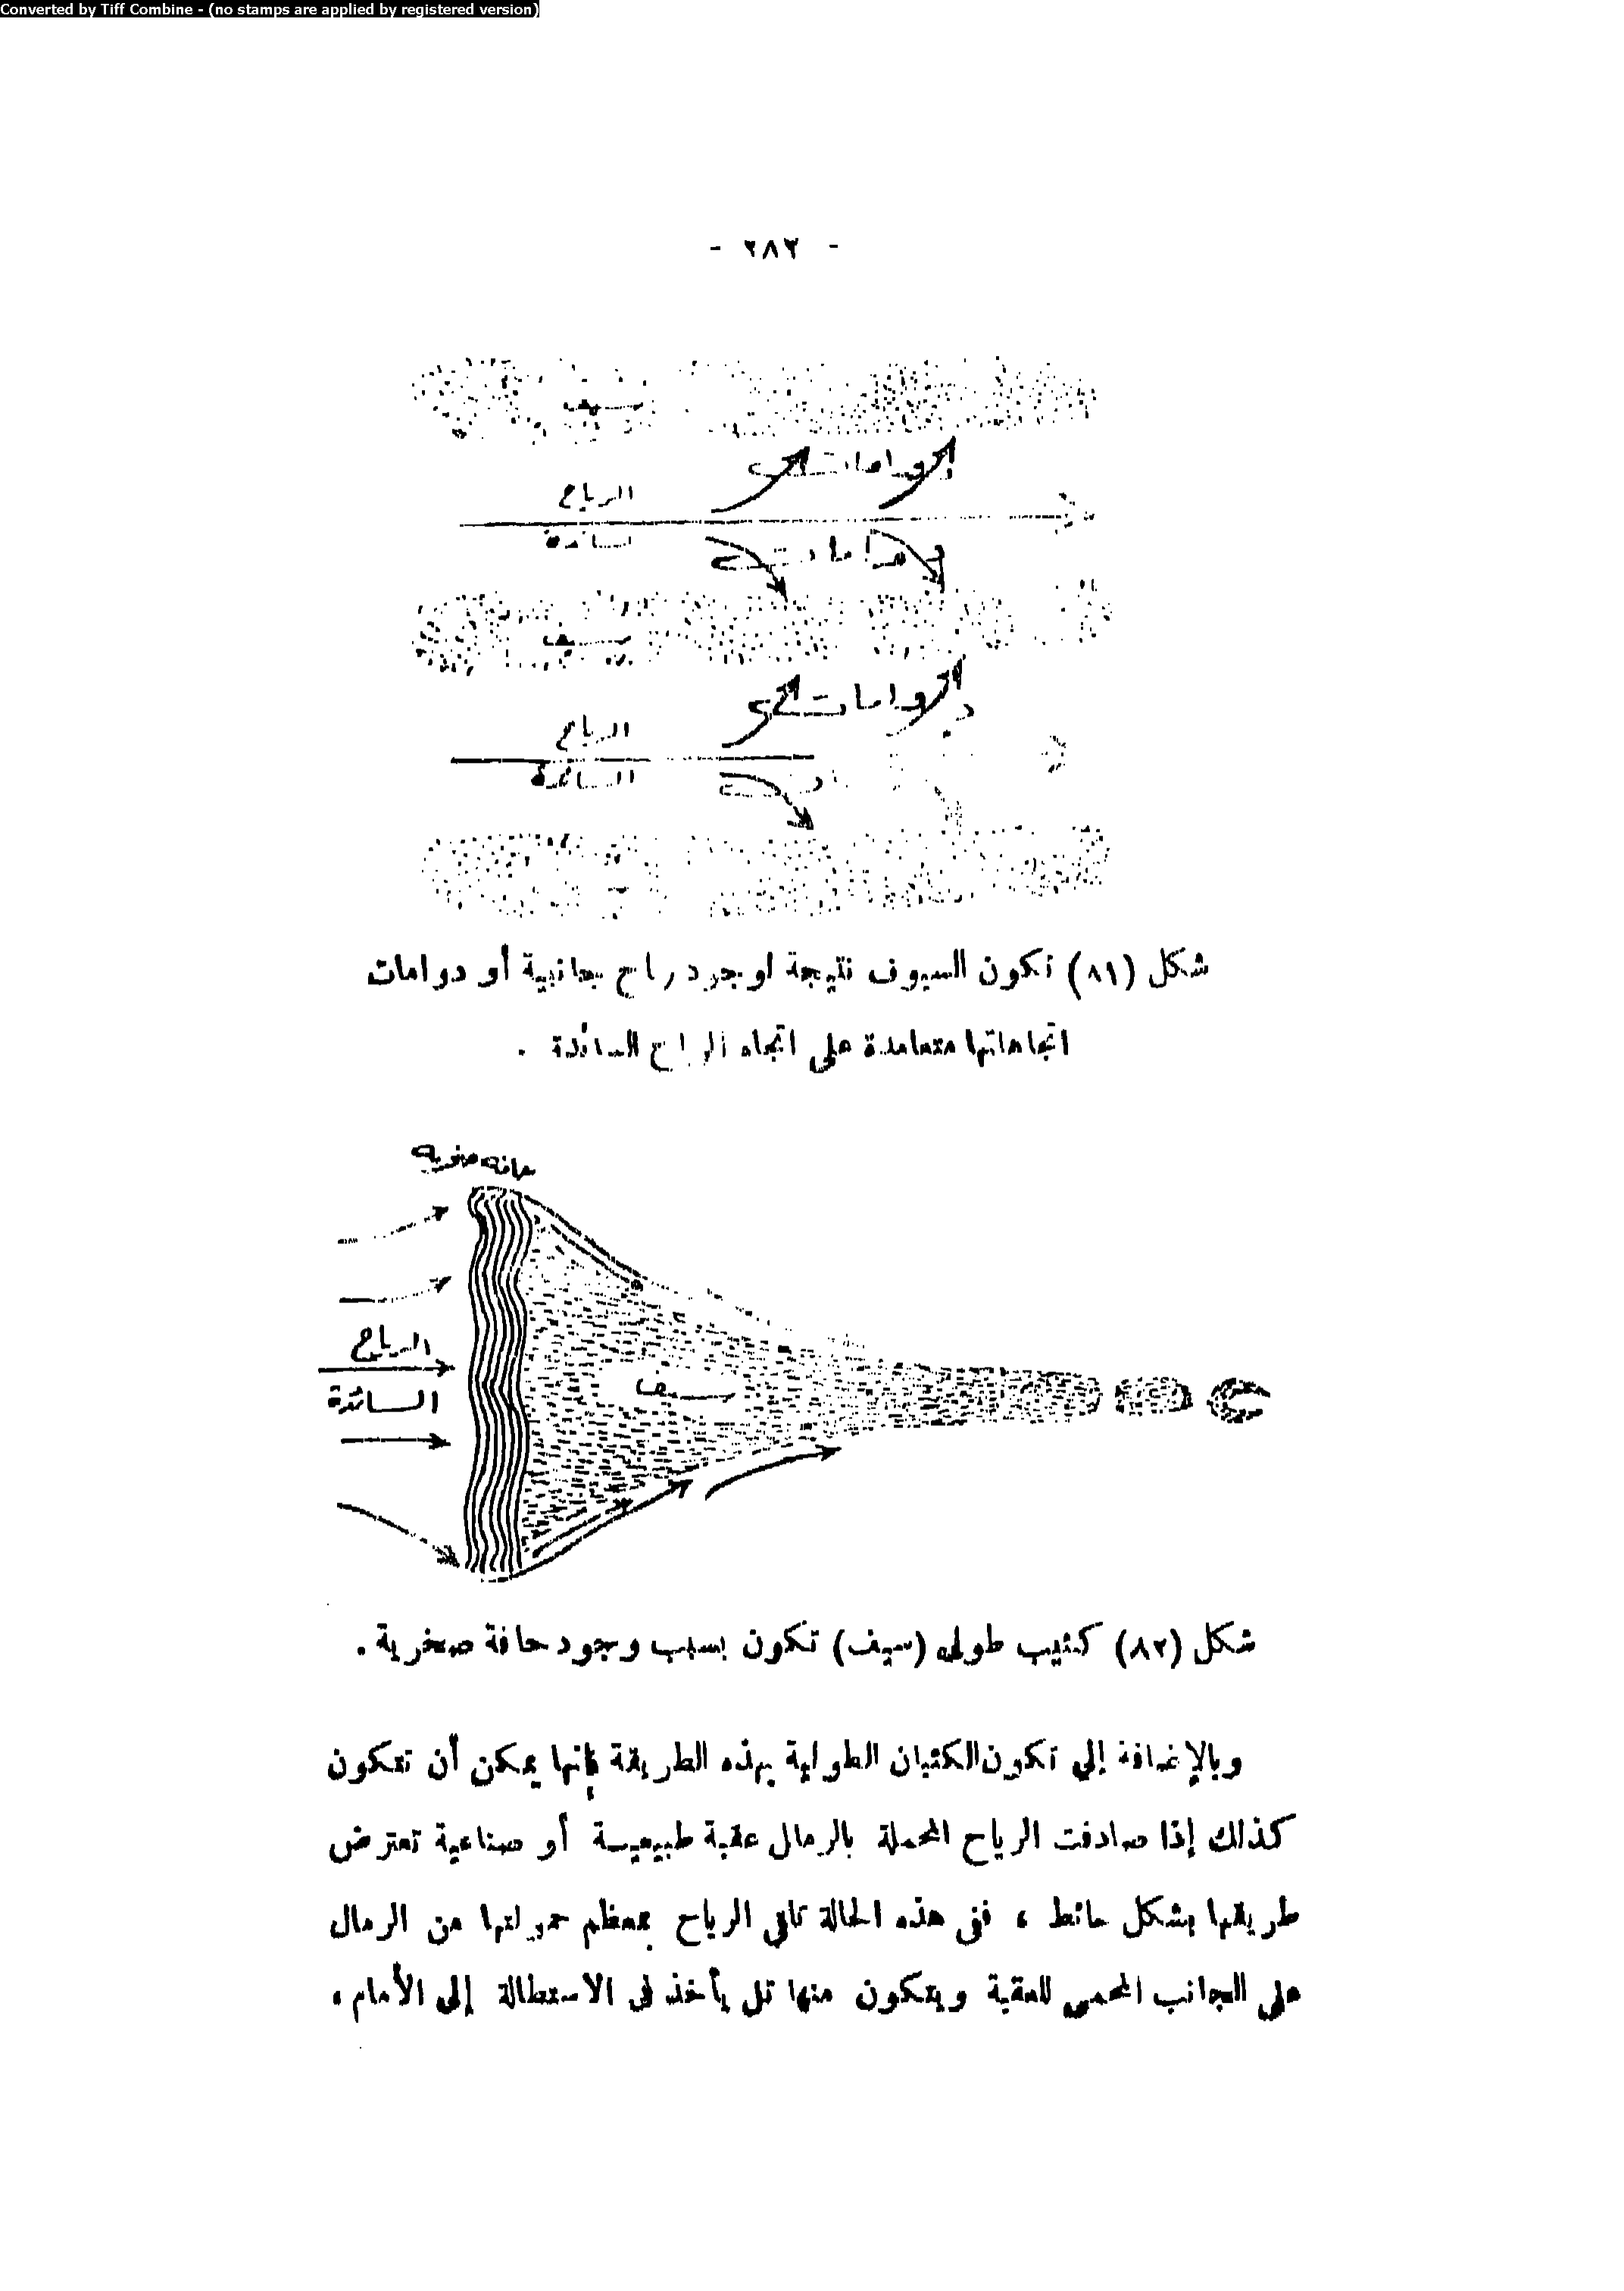 Converted by Tiff Combine - (no stamps are applied by registered version)
- ٢٨٣ -
سيف
دوامات
الرياح
السائدة
دوامات
سيف
دوامات
الرياح
السائدة
شكل (٨١) تكون السيوف نتيجة لوجود رياح جانبية أو دوامات
اتجاهاتها متعامدة على اتجاه الرياح السائدة .
حافة صخرية
الرياح
السائدة
سيف
شكل (٨٢) كثيب طولى (سيف) تكون بسبب وجود حافة صخرية .
وبالإضافة إلى تكون الكثبان الطولية بهذه الطريقة فإنها يمكن أن تتكون
كذلك إذا صادفت الرياح المحملة بالرمال عقبة طبيعية أو صناعية تعترض
طريقها بشكل حائط ، ففى هذه الحالة تلقى الرياح بمعظم حمولتها من الرمال
على الجانب المحمى للعقبة ويتكون منها تل يأخذ فى الاستطالة إلى الأمام ،